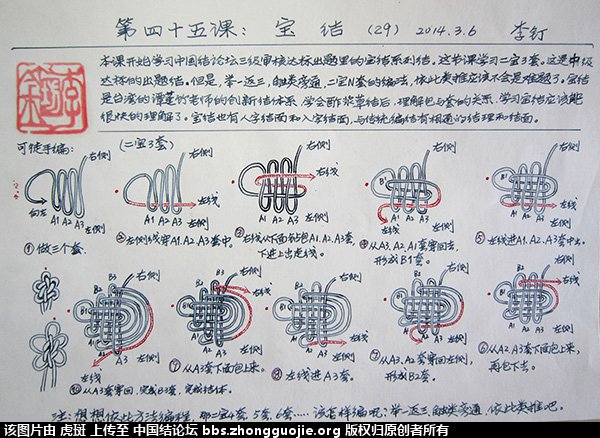 第四十五课: 宝结 (29) 2014.3.6 李钉
本课开始学习中国结论坛三级审核达标题里的宝结系列结。这节课学习二宝3套。这是中级
达标的出题结。但是,举一返三,触类旁通,二宝N套的编法,依此类推应该不会是难题了。宝结
是台湾的谭莲竹老师的创新结体系,学会酢浆草结后,理解包与套的关系,学习宝结应该能
很快的理解了。宝结也有人字结面和入字结面,与传统编结有相通的结理和结面。
可徒手编:
(二宝3套)
右侧
向左
A1 A2 A3
左侧
①做三个套.
右侧
左线
A1 A2 A3
左侧
②左侧线穿A1、A2、A3套中.
右侧
左线
A1 A2 A3
左侧
③左线从下面包A1、A2、A3套
下进上出走线.
右侧
B1
A1 A2 A3
左线
左侧
④从A3、A2、A1套穿回去,
形成B1套.
右侧
B1
左线
A1 A2 A3
左侧
⑤左线进A1、A2、A3套中去.
B2
右侧
左线
B1
A2 A3
左侧
⑥从A2 A3套下面包上来,
再包下去.
右侧
B2
B1
A2 A3
左线
左侧
⑦从A3、A2套穿回左侧,
形成B2套.
B2
右侧
B1
左线
A2 A3
左侧
⑧左线进A3套.
B3
右侧
B2
左线
B1
A2 A3
左侧
⑨从A3套下面包上来.
B3
右侧
B2
B1
A2 A3
左侧
左线
⑩从A3套穿回,完成B3套,完成结体.
注:想想依此方法编理,那二宝4套,5套,6套……该怎样编呢?举一返三,触类旁通,依此类推吧。
该图片由 虎斑 上传至 中国结论坛 bbs.zhongguojie.org 版权归原创者所有